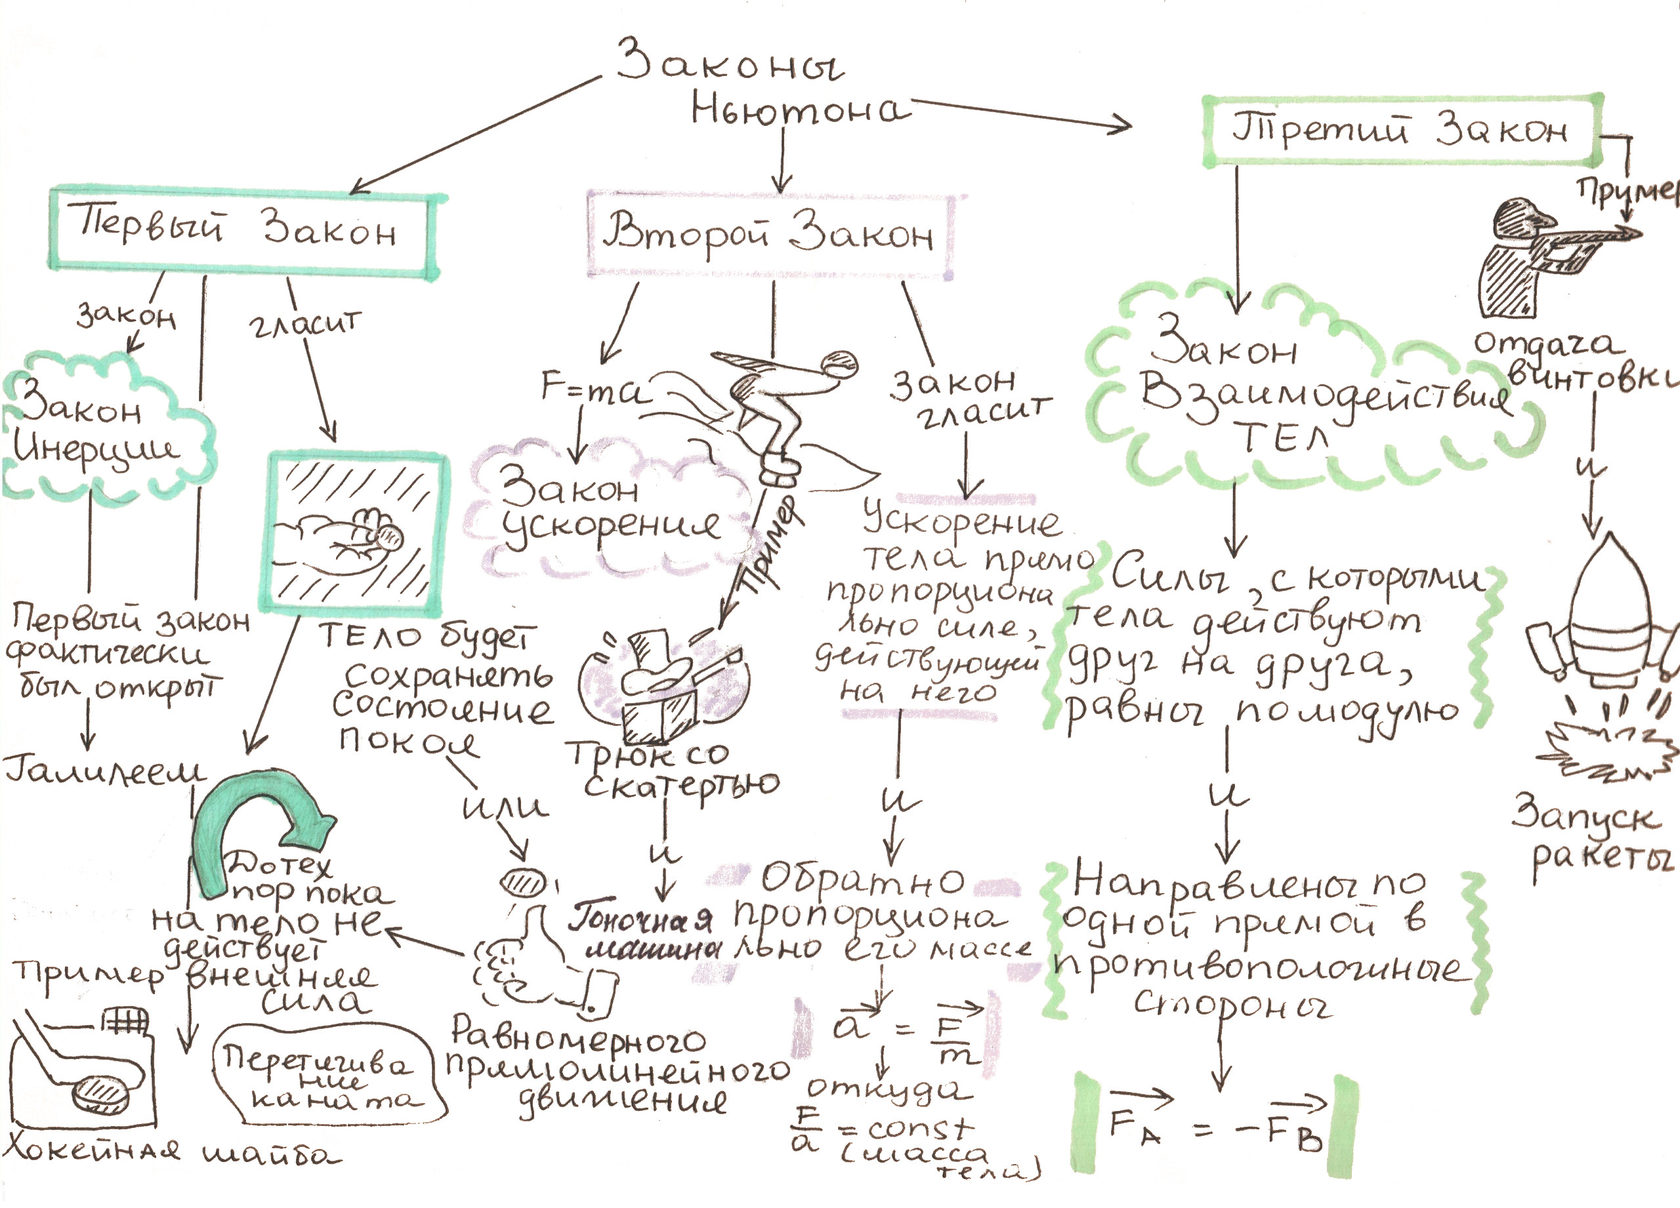 Законы
Ньютона
Первый Закон
закон
гласит
Закон
Инерции
Первый закон
фактически
был открыт
Галилеем
ТЕЛО будет
сохранять
состояние
покоя
или
Равномерного
прямолинейного
движения
До тех
пор пока
на тело не
действует
внешняя
сила
Пример
Хокейная шайба
Перетягива
ние
каната
Второй Закон
F=ma
Закон
ускорения
Пример
Трюк со
скатертью
и
Гоночная
машина
Закон
гласит
Ускорение
тела прямо
пропорциона
льно силе,
действующей
на него
и
Обратно
пропорциона
льно его массе
a = F/m
откуда
F/a = const
(масса
тела)
Третий Закон
Закон
Взаимодействия
ТЕЛ
Силы, с которыми
тела действуют
друг на друга,
равны по модулю
и
Направлены по
одной прямой в
противоположные
стороны
FA = -FB
Пример
отдача
винтовки
и
Запуск
ракеты